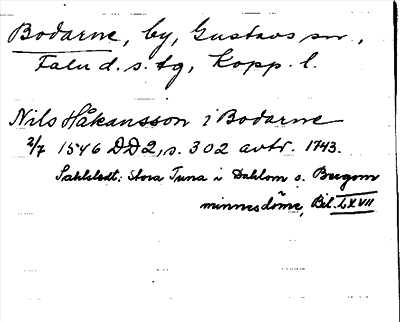 Bodarne, by, Gustavs sn,
Falu d. s. tg, Kopp. l.
Nils Håkansson i Bodarne
2/7 1546 DD2, s. 302 avtr. 1743.
Sahlstedt: Stora Tuna i Dahlom s. Bergom
minnesdöme, Bil. LXVII